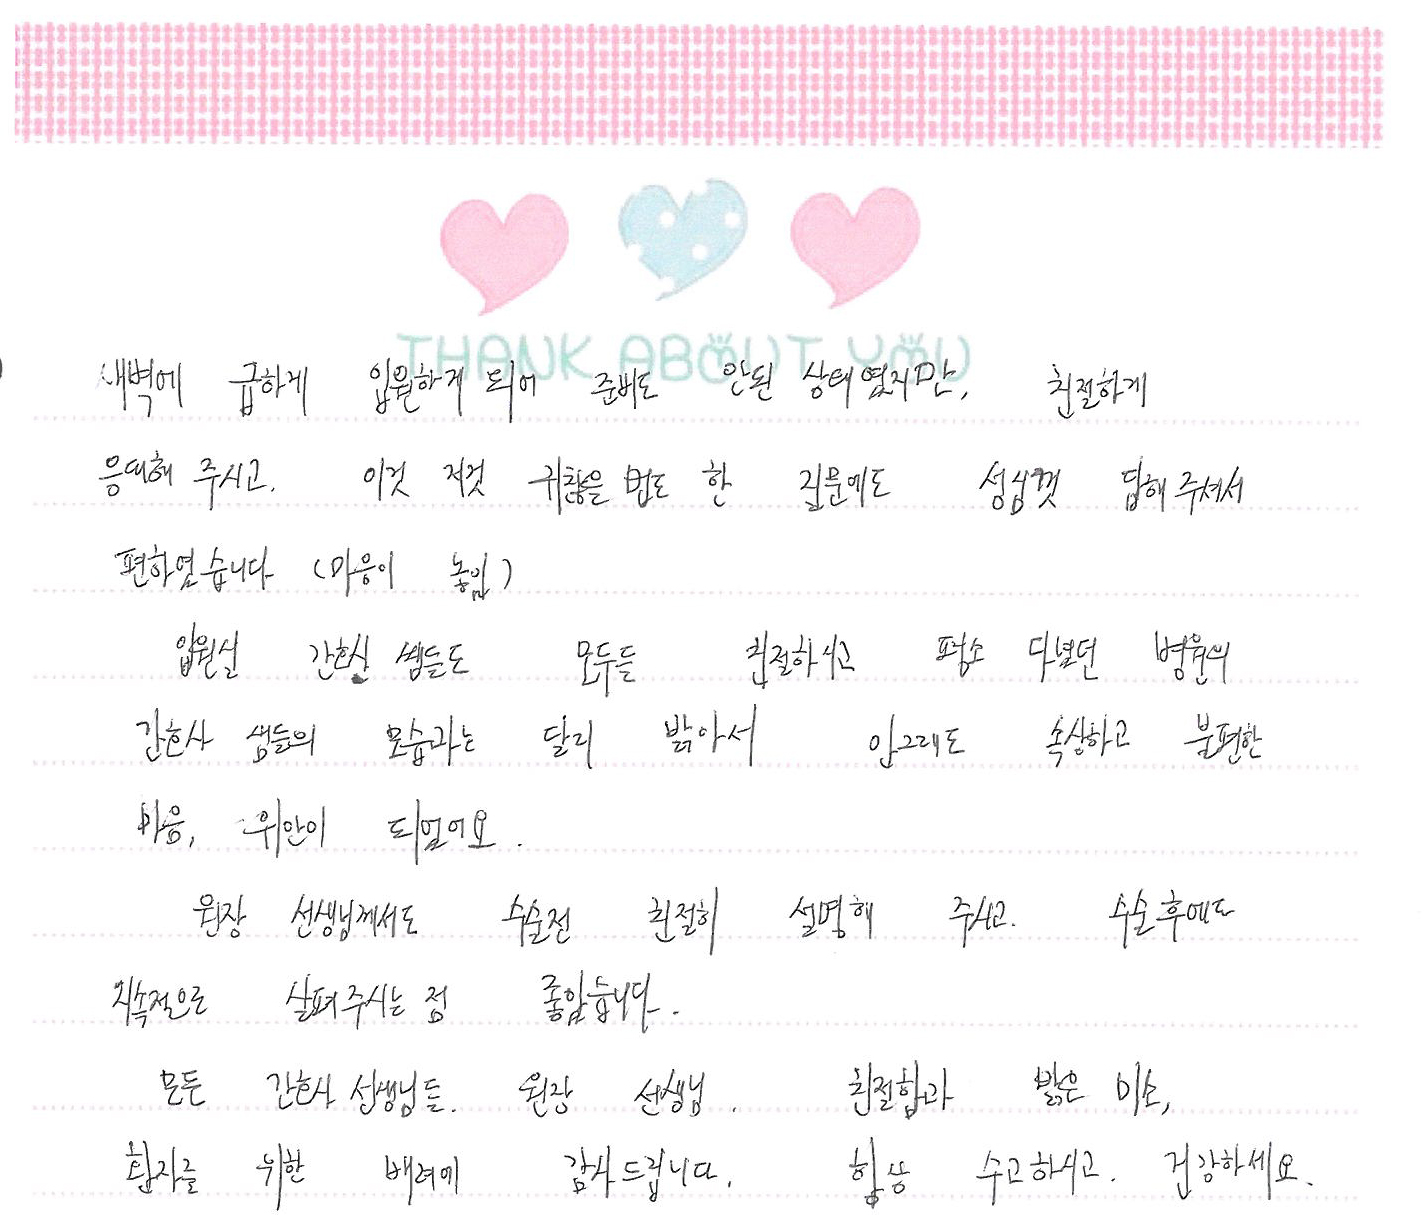 THANK ABOUT YOU
새벽에 급하게 입원하게 되어 준비도 안된 상태였지만, 친절하게
응대해 주시고, 이것 저것 귀찮을 법도 한 질문에도 성심껏 답해 주셔서
편하였습니다 (마음이 놓임)
입원실 간호실 쌤들도 모두들 친절하시고 평소 다녔던 병원의
간호사 샘들의 모습과는 달리 밝아서 안그래도 속상하고 불편한
마음, 위안이 되었어요.
원장 선생님께서도 수술전 친절히 설명해 주시고. 수술후에도
지속적으로 살펴주시는 점 좋았습니다.
모든 간호사 선생님들. 원장 선생님. 친절함과 밝은 미소,
환자를 위한 배려에 감사드립니다. 항상 수고하시고. 건강하세요.